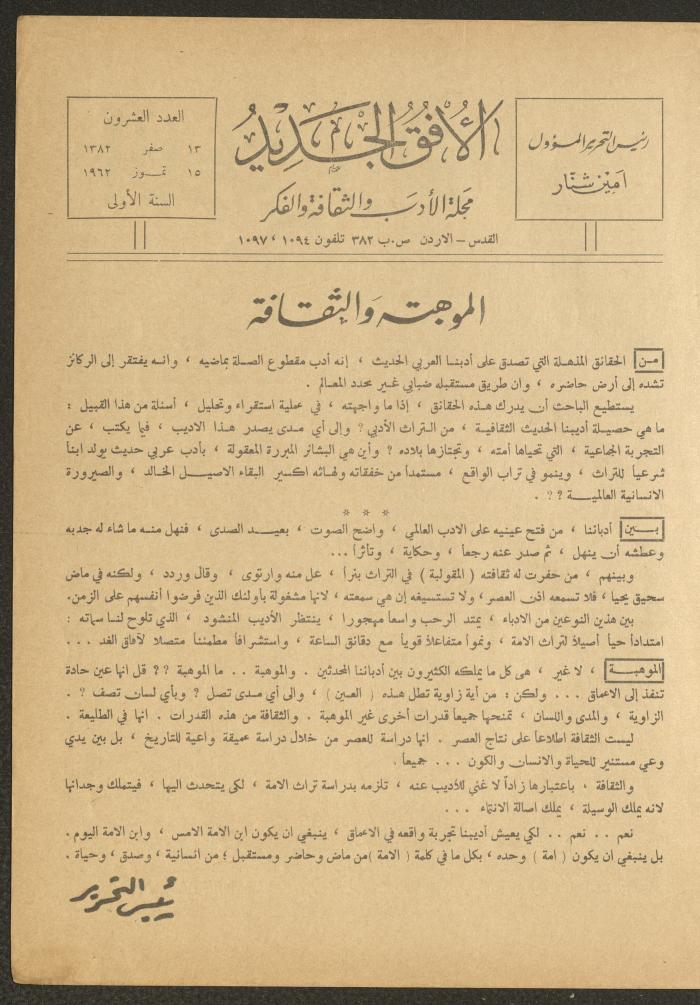 رئيس التحرير المسؤول
امين شنّار
الأفق الجديد
مجلة الأدب والثقافة والفكر
القدس – الاردن ص.ب ٣٨٢ تلفون ١٠٩٤ ، ١٠٩٧
العدد العشرون
١٣ صفر ١٣٨٢
١٥ تمـوز ١٩٦٢
السنة الأولى
الموهبة والثقافة
مـن الحقائق المذهـلة التي تصدق على أدبنا العربي الحديث ، إنه أدب مقطوع الصلة بماضيه ، وانـه يفتقر إلى الركائز
تشده إلى أرض حاضره ، وان طريق مستقبله ضبابي غـير محدد المعـالم .
يستطيع الباحث أن يدرك هـذه الحقائق ، إذا ما واجهته ، في عملية استقراء وتحليل ، أسئلة من هذا القبيل :
ما هي حصيـلة أديبنا الحديث الثقافيـة ، من الـتراث الأدبي ؟ وإلى أي مـدى يصدر هـذا الاديب ، فيما يكتب ، عن
التجربة الجماعية ، التي تحياها أمته ، وتجتازها بلاده ؟ وأين هي البشائر المبررة المعقولة ، بأدب عربي حديث يولد ابناً
شرعياً للتراث ، وينمو في تراب الواقع ، مستمداً من خفقاته ولهاثه اكسير البقاء الاصيـل الخـالد ، والصيرورة
الانسانية العالميـة ؟ ؟ .
* * *
بـين أدبائنا ، من فتح عينيه على الادب العالمي ، واضح الصوت ، بعيـد الصدى ، فنهل منـه ما شاء له جدبه
وعطشه أن ينهل ، ثم صدر عنه رجعاً ، وحكاية ، وتأثراً ...
وبينهم ، من حفرت له ثقافته ( المقولبة ) في التراث بئراً ، عل منه وارتوى ، وقال وردد ، ولكنه في ماض
سحيق يحيا ، فلا تسمعه اذن العصر ، ولا تستسيغه إن هي سمعته ، لانها مشغولة بأولئك الذين فرضوا أنفسهم على الزمن.
بين هذين النوعين من الادباء ، يمتد الرحب واسعاً مهجورا ، ينتظر الأديب المنشود ، الذي تلوح لنا سماته :
امتداداً حياً أصيلاً لتراث الامة ، ونمواً متفاعلاً قوياً مع دقائق الساعة ، واستشرافاً مطمئناً متصلاً لآفاق الغد ...
الموهبـة ، لا غير ، هى كل ما يملكه الكثيرون بين أدبائنا المحدثين . والموهبة .. ما الموهبة ؟؟ قل انها عين حادة
تنفذ إلى الاعماق ... ولكن : من أية زاوية تطل هـذه ( العـين ) ، والى أي مـدى تصل ؟ وبأي لسان تصف ؟ .
الزاوية ، والمدى واللسان ، تمنحها جميعاً قدرات أخرى غير الموهبة . والثقافة من هذه القدرات . انها في الطليعة .
ليست الثقافة اطلاعاً على نتاج العصر . انها دراسة للعصر من خلال دراسة عميقة واعية للتاريخ ، بل بين يدي
وعي مستنير للحياة والانسان والكون ... جميعاً .
والثقافة ، باعتبارها زاداً لا غنى للأديب عنه ، تلزمه بدراسة تراث الامة ، لكى يتحدث اليها ، فيتملك وجدانها
لانه يملك الوسيلة ، يملك اصالة الانتماء ...
نعم .. نعم .. لكي يعيش أديبنا تجربة واقعه في الاعماق ، ينبغي ان يكون ابن الامة الامس ، وابن الامة اليوم .
بل ينبغي ان يكون ( امة ) وحده ، بكل ما في كلمة ( الامة ) من ماض وحاضر ومستقبل ؛ من انسانية ، وصدق ، وحياة .
رئيس التحرير